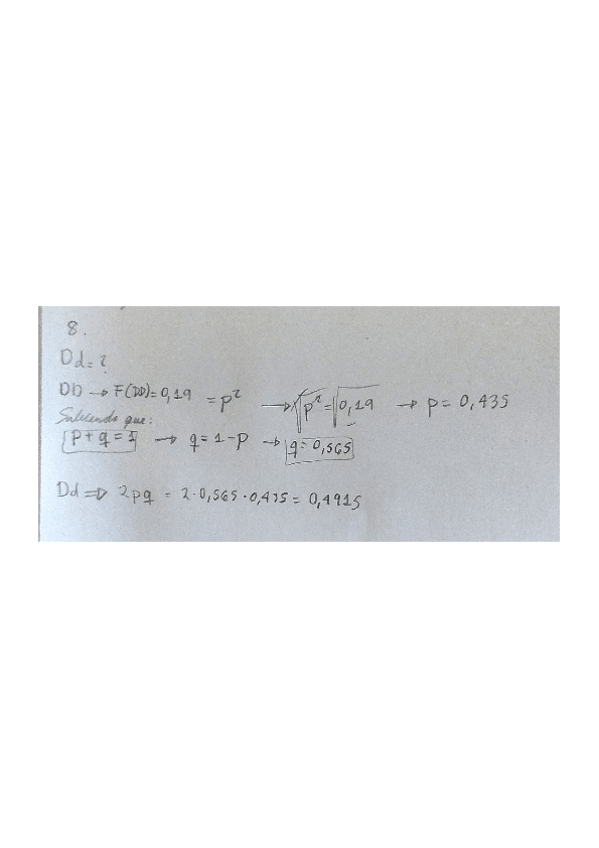 8.
Dd = ?
DD → F(DD) = 0,19 = p² → √p² = √0,19 → p = 0,435
Sabendo que:
p + q = 1 → q = 1 - p → q = 0,565
Dd ⇒ 2pq = 2 · 0,565 · 0,435 = 0,4915